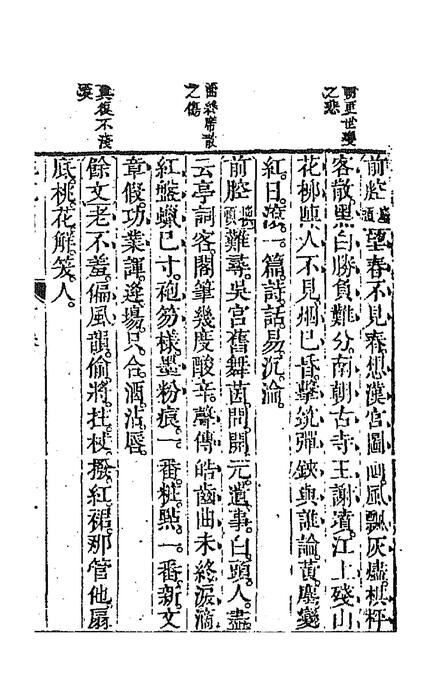 朝更世變
之悲
酒終席散
之傷
興復不淺
前腔換頭望春不見春想漢宮圖画風飄灰燼棋枰
客散黑白勝負難分南朝古寺王謝墳江上殘山
花柳陣人不見烟已昏擊筑彈鋏與誰論黃塵變
紅日滾一篇詩話易沉淪
前腔換頭難尋吳宮舊舞茵問開元遺事白頭人盡
云亭詞客閣筆幾度酸辛聲傳皓齒曲未終淚滴
紅盤蠟已寸袍笏樣墨粉痕一番粧點一番新文
章假功業諢逢場只合酒沾唇
餘文老不羞偏風韻偷將拄杖撥紅裙那管他扇
底桃花解笑人